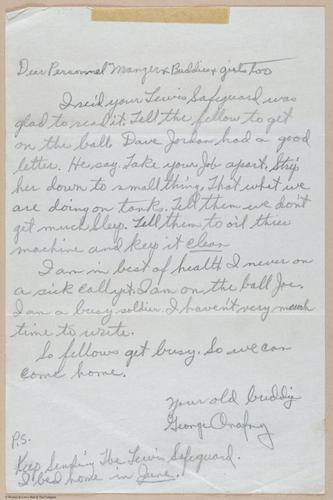 Dear Personnel Manger & Buddies & girls too
I seid your Lewis Safeguard was
glad to read it. Tell the fellow to get
on the ball. Dave Jordan had a good
letter. He, say. Take your Job apart, Strip
her down to small thing. That what we
are doing on tank. Tell them we don't
get much sleep. Tell them to oil thier
machine and keep it clean
I am in best of health I never on
a sick call yet. I am on the ball Joe.
I am a busy soldier. I haven't very much
time to write.
So fellows get busy. So we can
come home.
Your old buddy
George
P.S.
Keep Sending The Lewis Safeguard.
I be home in June.